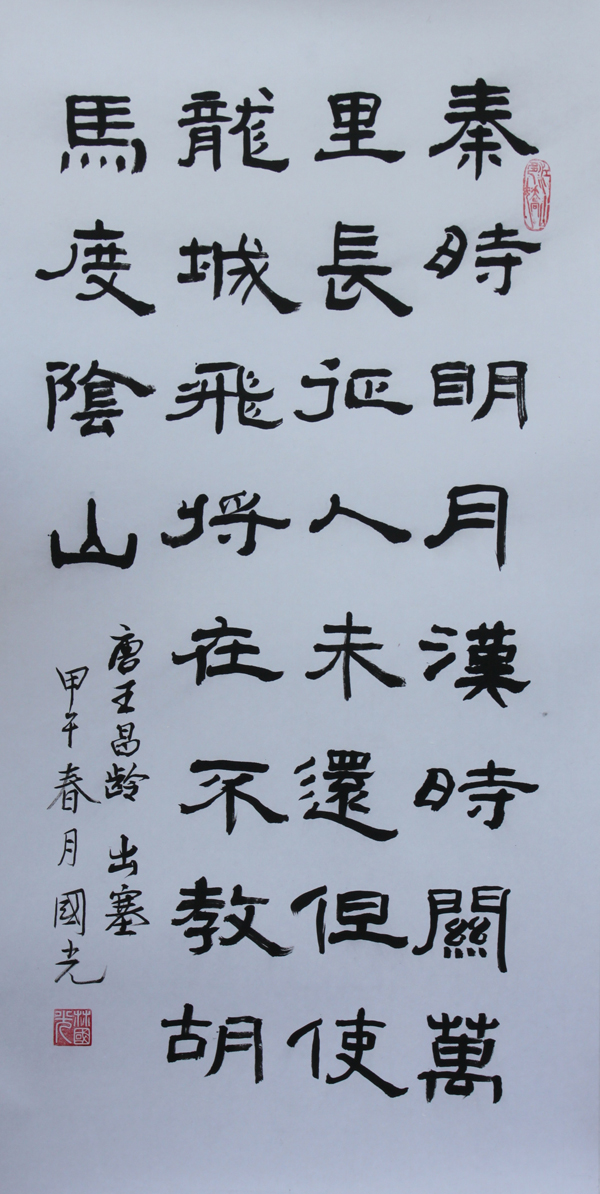 秦時明月漢時關萬
里長征人未還但使
龍城飛将在不教胡
馬度陰山
唐王昌龄出塞
甲午春月國光
林國光